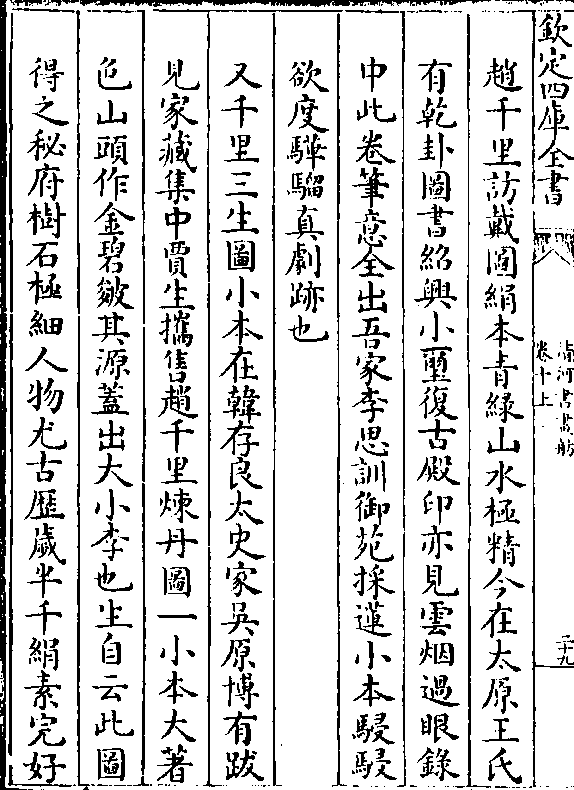 欽定四庫全書
清河書畫舫
卷十上
二十九
趙千里訪戴圖絹本青綠山水極精今在太原王氏
有乾卦圖書紹興小璽復古殿印亦見雲烟過眼錄
中此卷筆意全出吾家李思訓御苑採蓮小本駸駸
欲度驊騮真劇跡也
又千里三生圖小本在韓存良太史家吳原博有跋
見家藏集中賈生攜售趙千里煉丹圖一小本大著
色山頭作金碧皴其源蓋出大小李也生自云此圖
得之秘府樹石極細人物尤古歷歲半千絹素完好